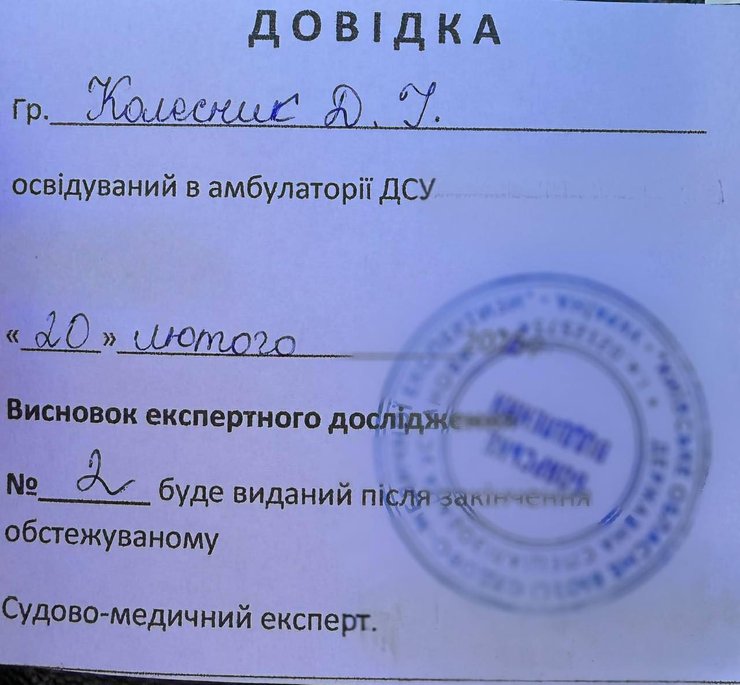 ДОВІДКА
Гр. Колесник Д. І.
освідуваний в амбулаторії ДСУ
«20» лютого
Висновок експертного дослідження
№ 2 буде виданий після закінчення
обстежуваному
Судово-медичний експерт.